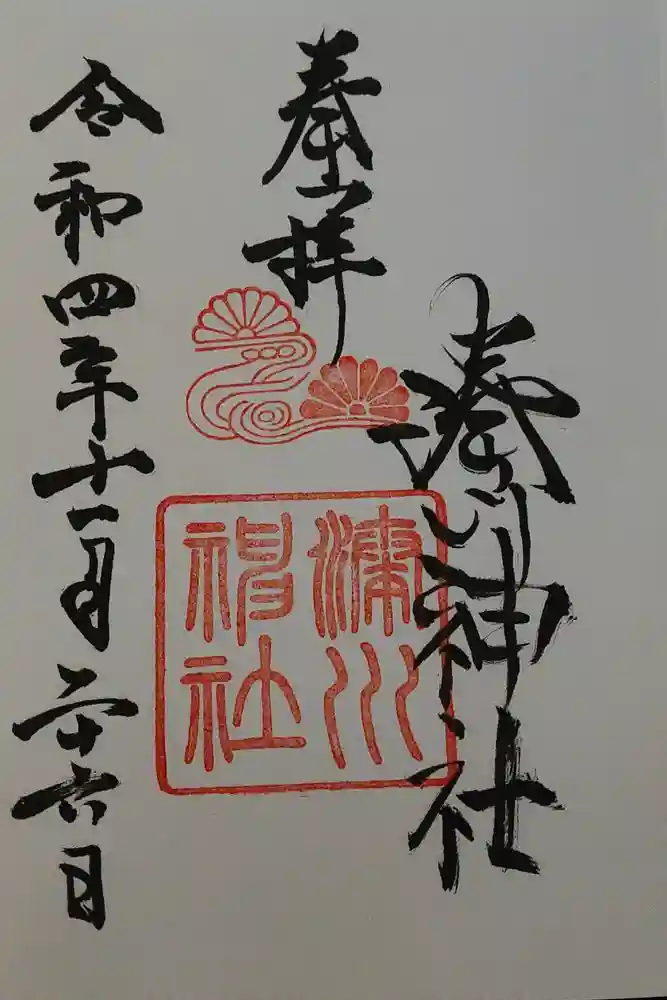 湊川神社
奉拝
湊川
神社
令和四年十一月二十六日